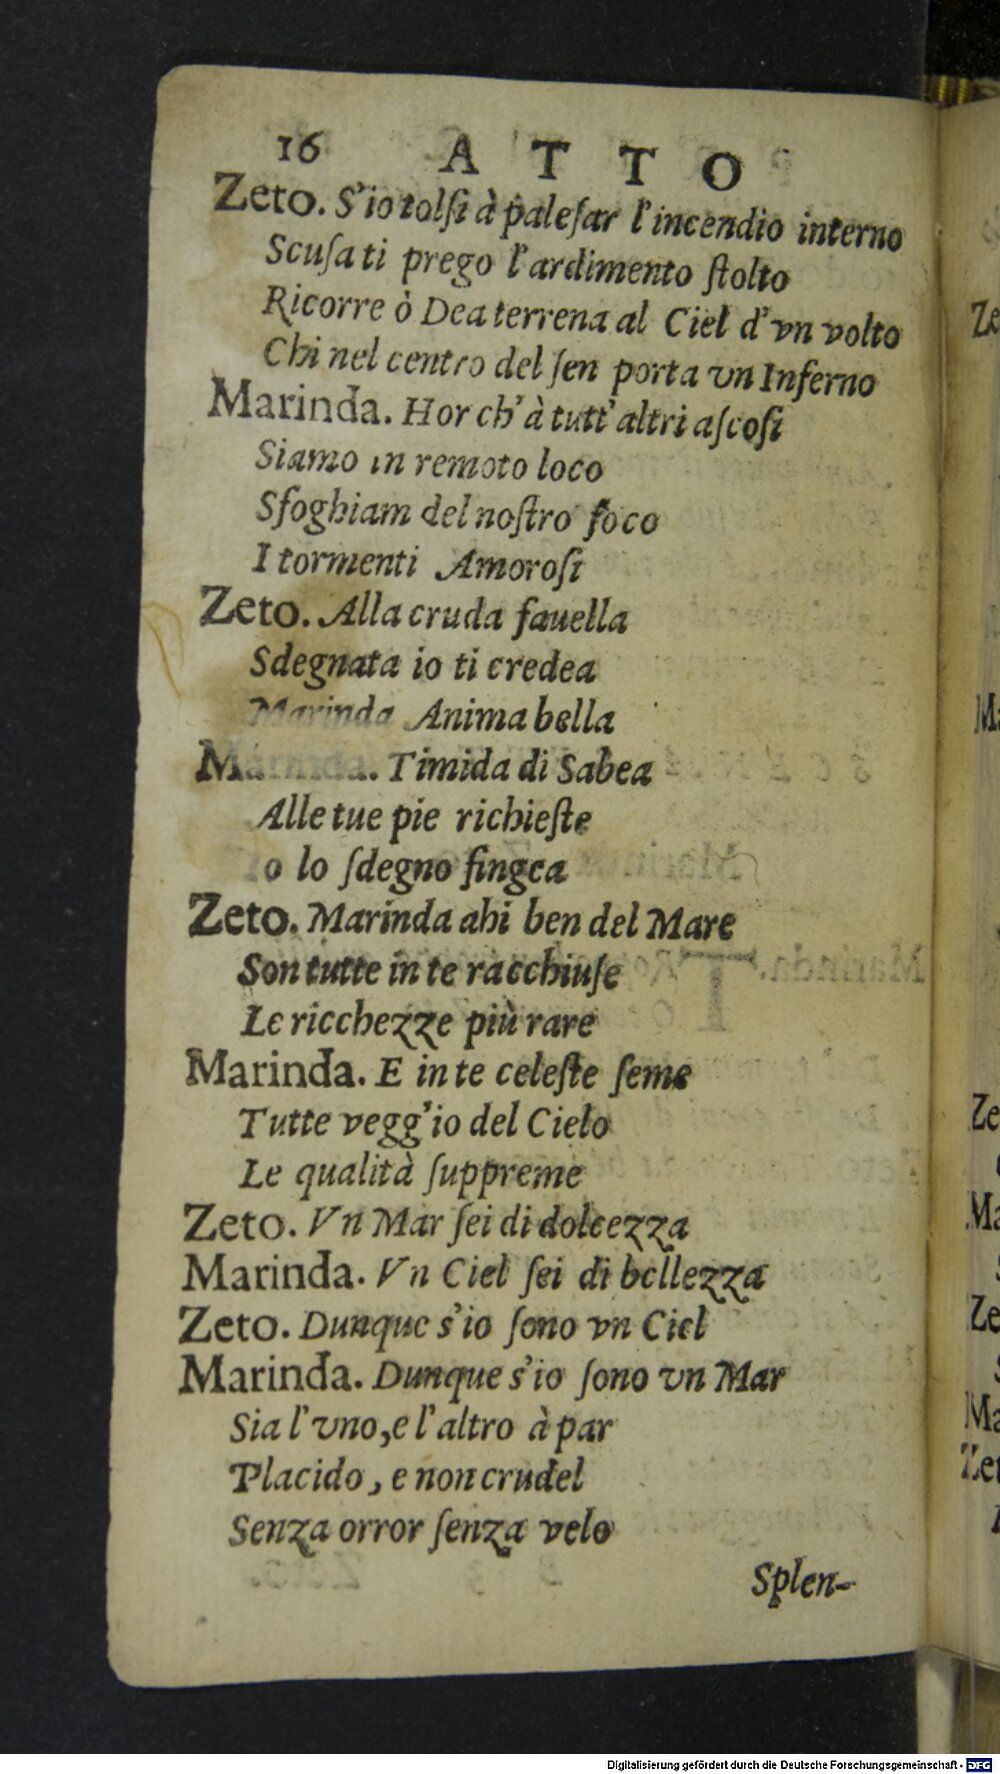 16 ATTO
Zeto. S'io tolſi à paleſar l'incendio interno
Scuſa ti prego l'ardimento ſtolto
Ricorre ò Dea terrena al Ciel d'vn volto
Chi nel centro del ſen porta vn Inferno
Marinda. Hor ch'à tutt'altri aſcoſi
Siamo in remoto loco
Sfoghiam del noſtro foco
I tormenti Amoroſi
Zeto. Alla cruda fauella
Sdegnata io ti credea
Marinda Anima bella
Marinda. Timida di Sabea
Alle tue pie richieſte
Io lo ſdegno fingea
Zeto. Marinda ahi ben del Mare
Son tutte in te racchiuſe
Le ricchezze più rare
Marinda. E in te celeſte ſeme
Tutte vegg'io del Cielo
Le qualità ſuppreme
Zeto. Vn Mar ſei di dolcezza
Marinda. Vn Ciel ſei di bellezza
Zeto. Dunque s'io ſono vn Ciel
Marinda. Dunque s'io ſono vn Mar
Sia l'vno, e l'altro à par
Placido, e non crudel
Senza orror ſenza velo
Splen-
Digitalisierung gefördert durch die Deutsche Forschungsgemeinschaft - DFG